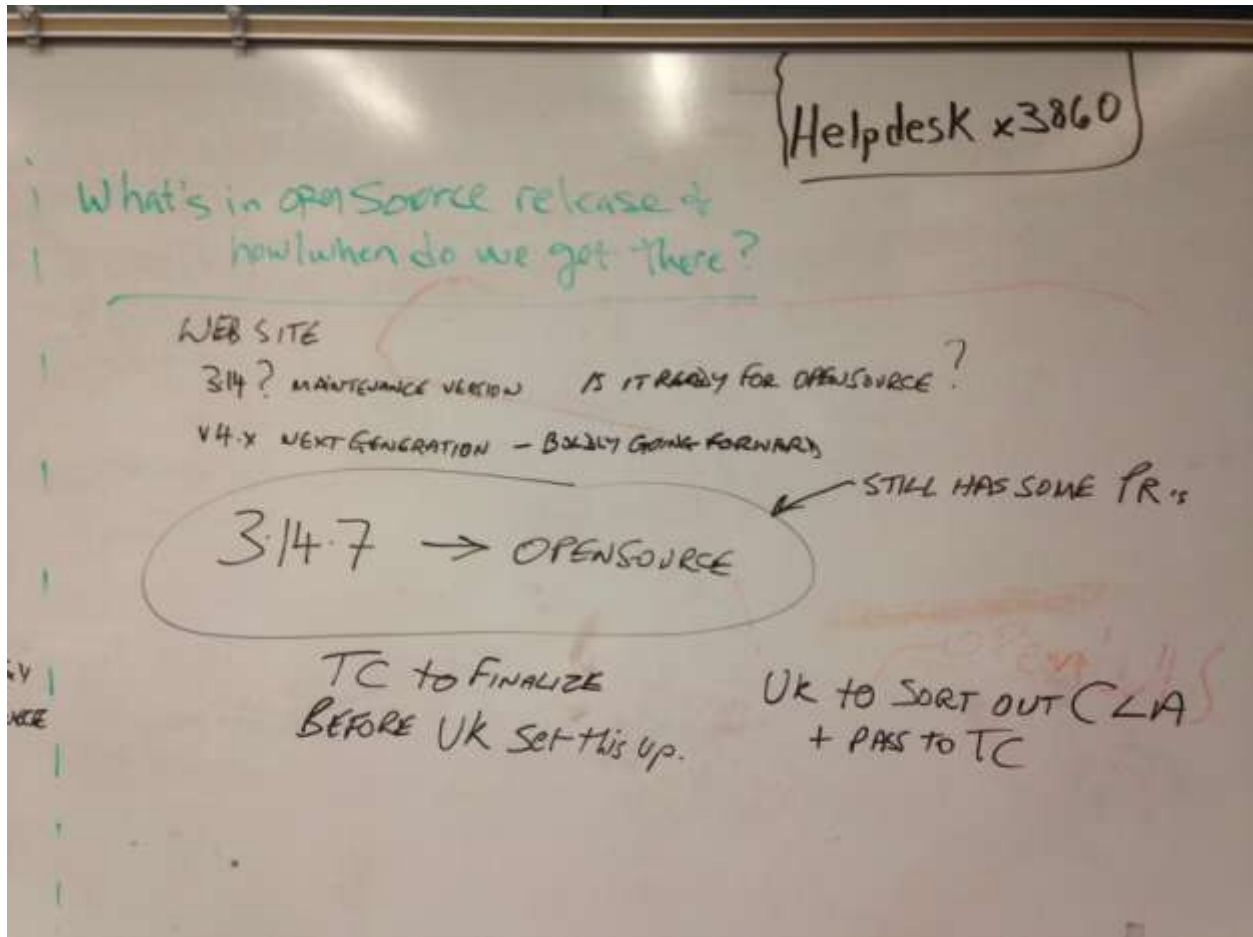 Helpdesk x3860
What's in open Source release &
how/when do we get there?
WEB SITE
3.14? MAINTENANCE VERSION IS IT READY FOR OPENSOURCE?
V4.X NEXT GENERATION - BOLDLY GOING FORWARD
STILL HAS SOME PR's
3.14.7 → OPENSOURCE
TC to FINALIZE
BEFORE UK Set this up.
UK to SORT OUT CLA
+ PASS TO TC